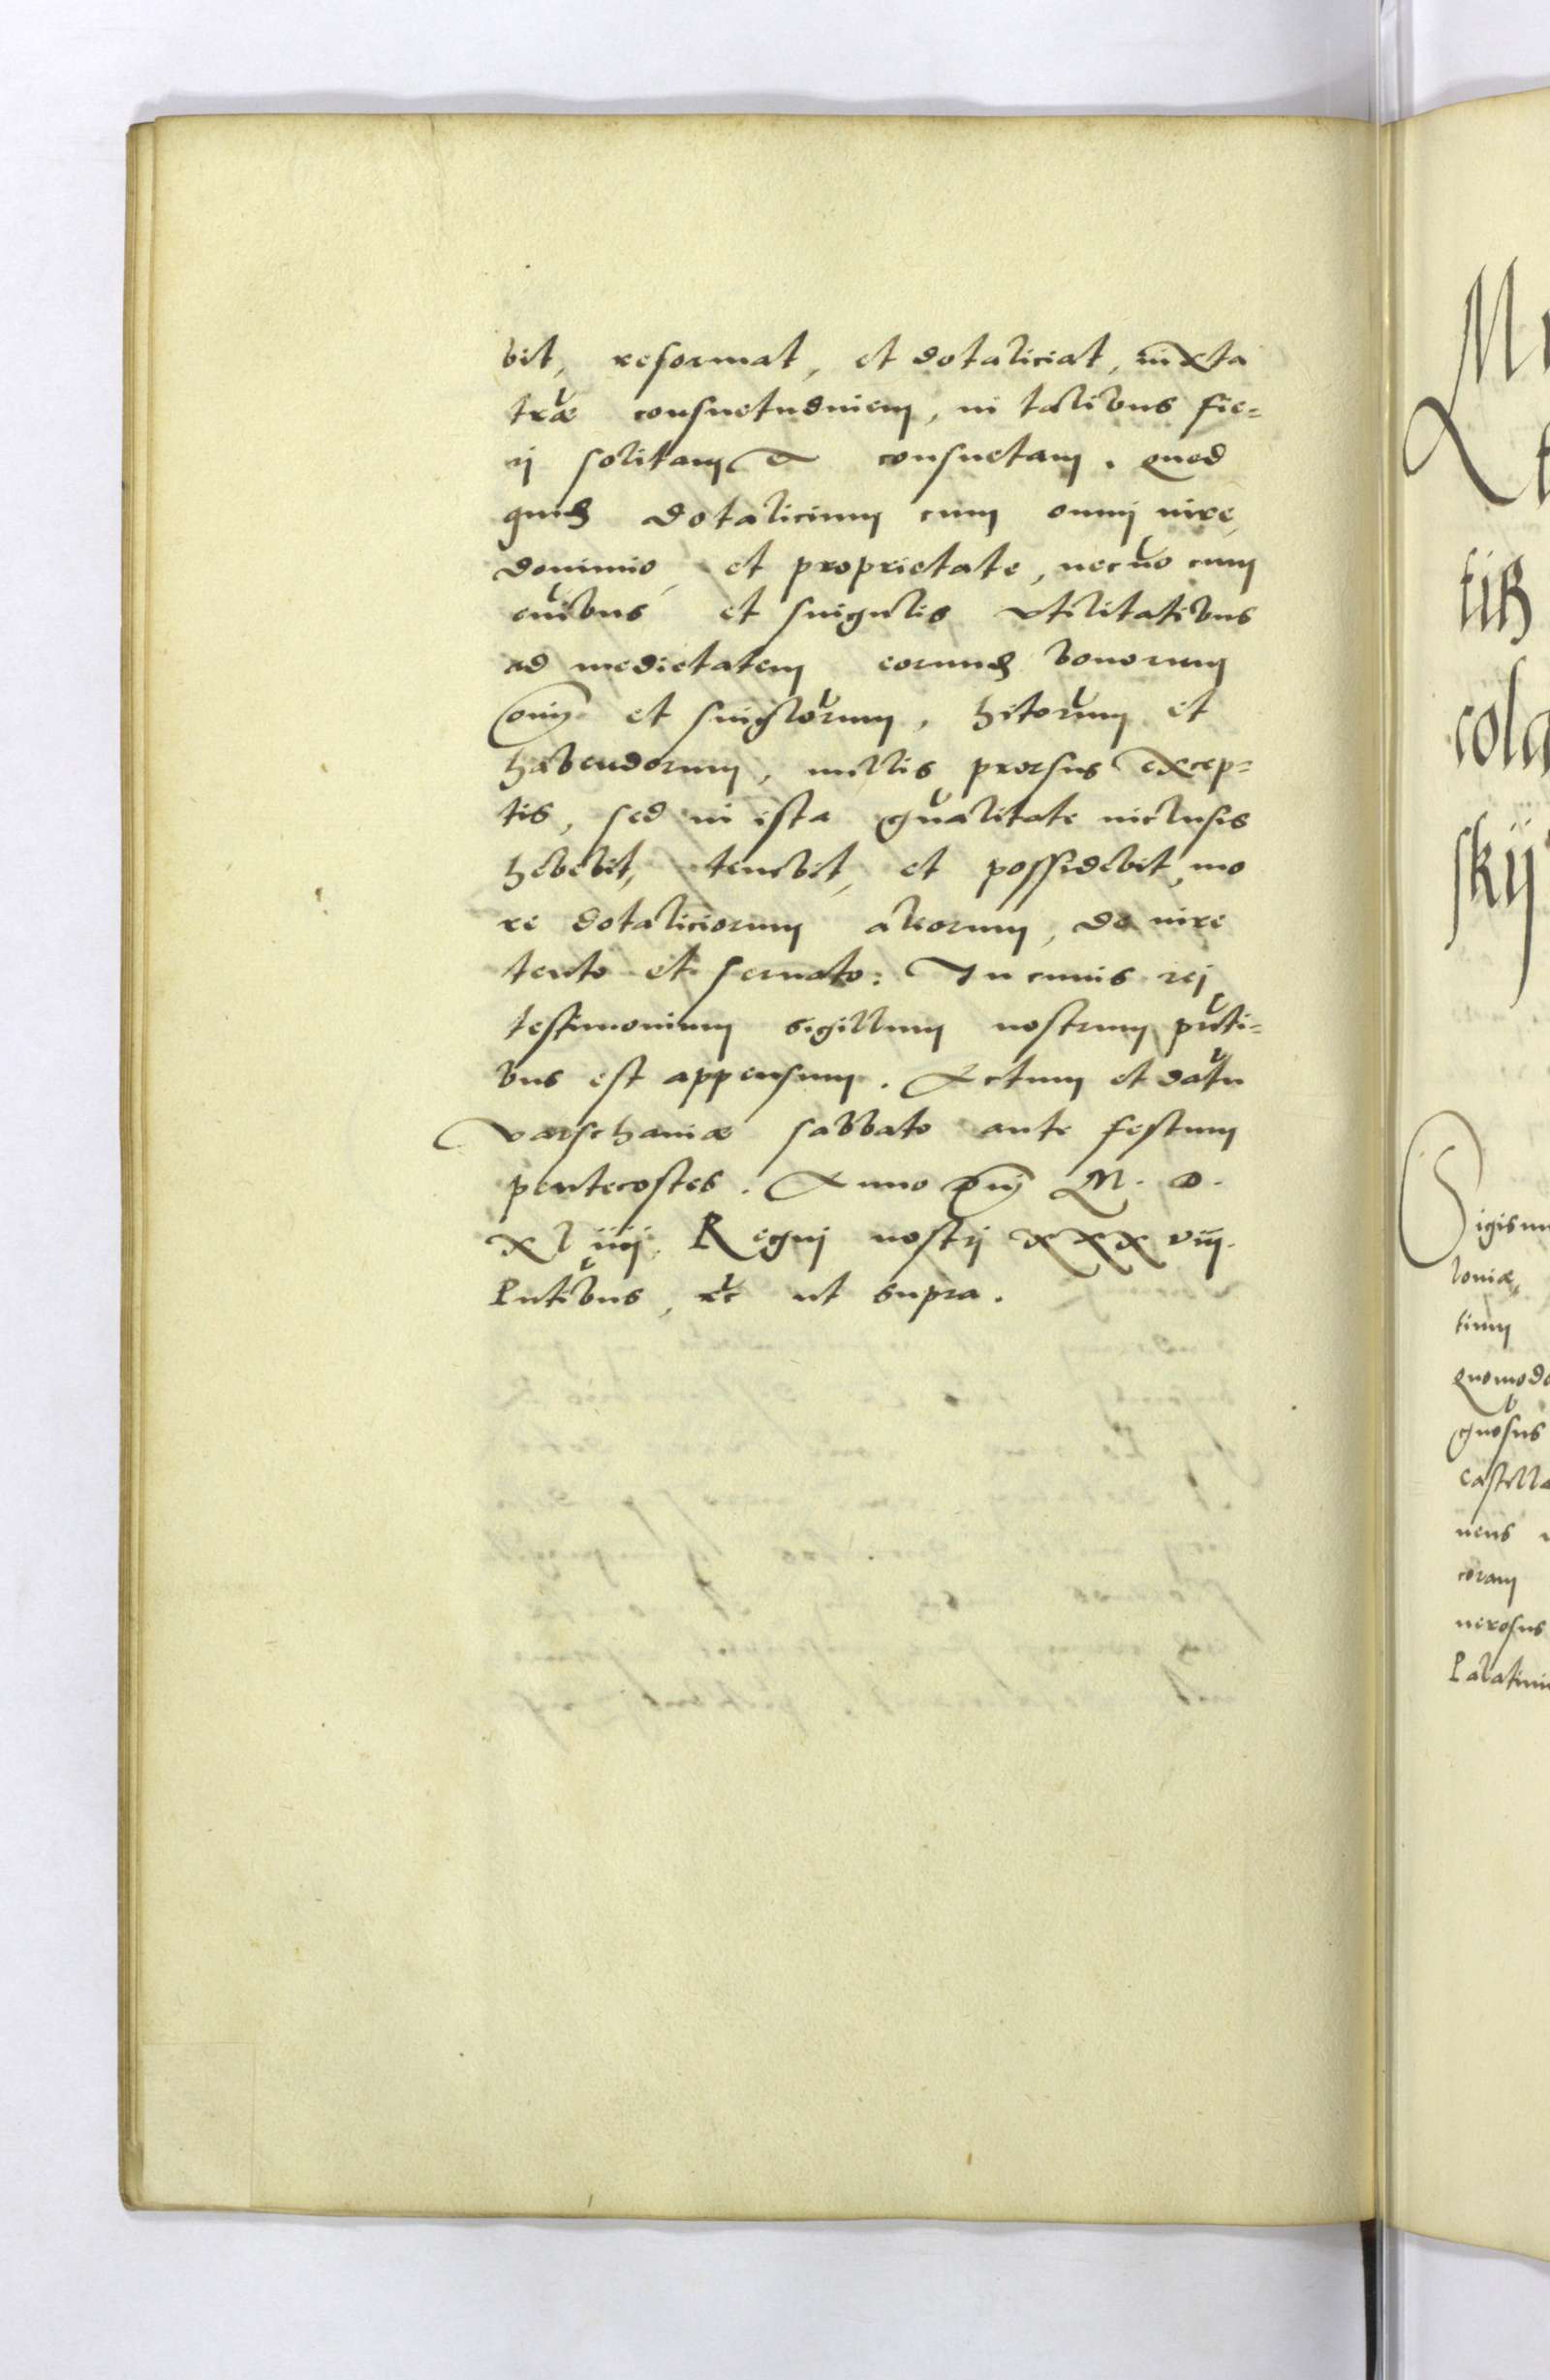 bit, reformat, et dotaliciat, iuxta
træ consuetudinem, in talibus fie=
rj solitam et consuetam. Quod
quid dotalicium cum omnj iure,
dominio, et proprietate, necno cum
oibus et singulis vtilitatibus
ad medietatem eorund bonorum
oim et singlorum, hitorum et
habendorum, nullis prorsus excep=
tis, sed in ista qualitate inclusis
hebebit, tenebit, et possidebit, mo
re dotaliciorum aliorum, de iure
tento et seruato: In cuius rej
testimonium sigillum nostrum pnti=
bus est appensum. Actum et datu
Varschauiæ sabbato ante festum
pentecostes. Anno dnj M. D.
XLiiij. Regnj nostrj XXXviij.
Pntibus, etc ut supra.
M
tiß
cola
skij
Sigism
loniæ,
tium
Quomodo
gnosus
castella
nens
coram
nerosus
Palatin